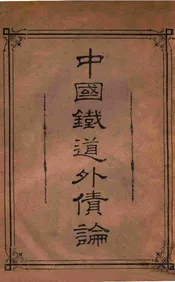 中國鐵道外債論